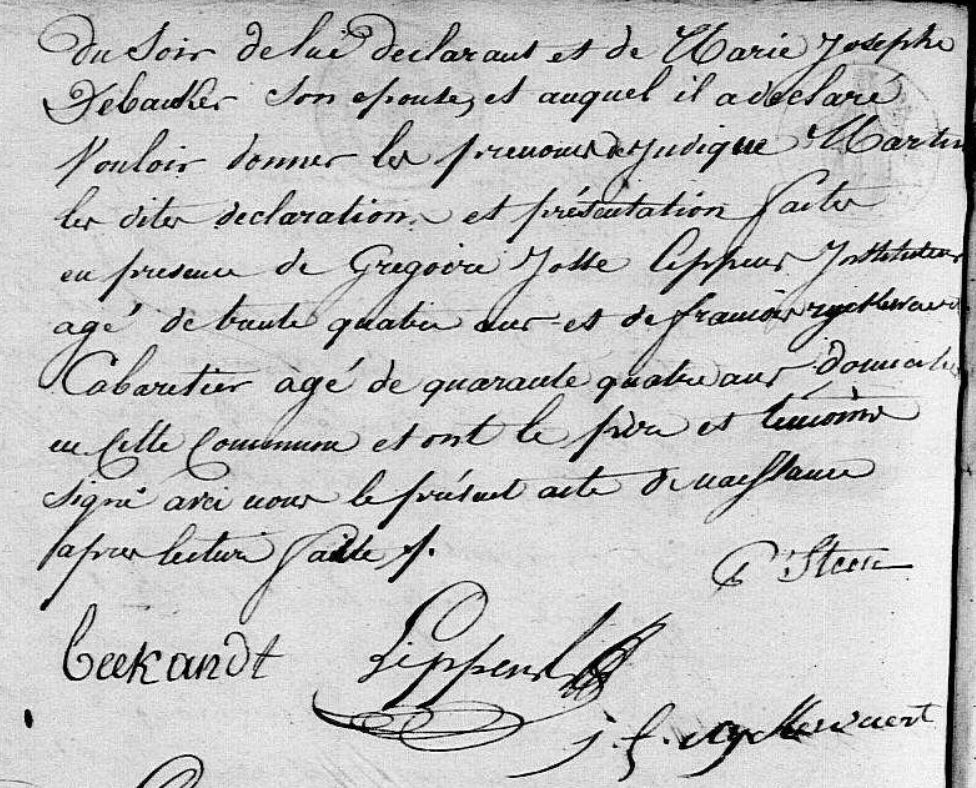 du Soir de lui declarant et de Marie Josephe
Debacker Son epouse, et auquel il a déclaré
Vouloir donner les prenoms de Judique Martin
les dites declaration et présentation faites
en presence de Gregoire Josse Lippens Instituteur
agé de trente quatre ans et de francois ryckewaert
Cabaretier agé de quarante quatre ans domicilies
en Cette Commune et ont le père et temoins
signé avec nous le présent acte de naissance
apres lecture faitte ./.
Steen
Beekandt Lippens
j. f. Ryckewaert